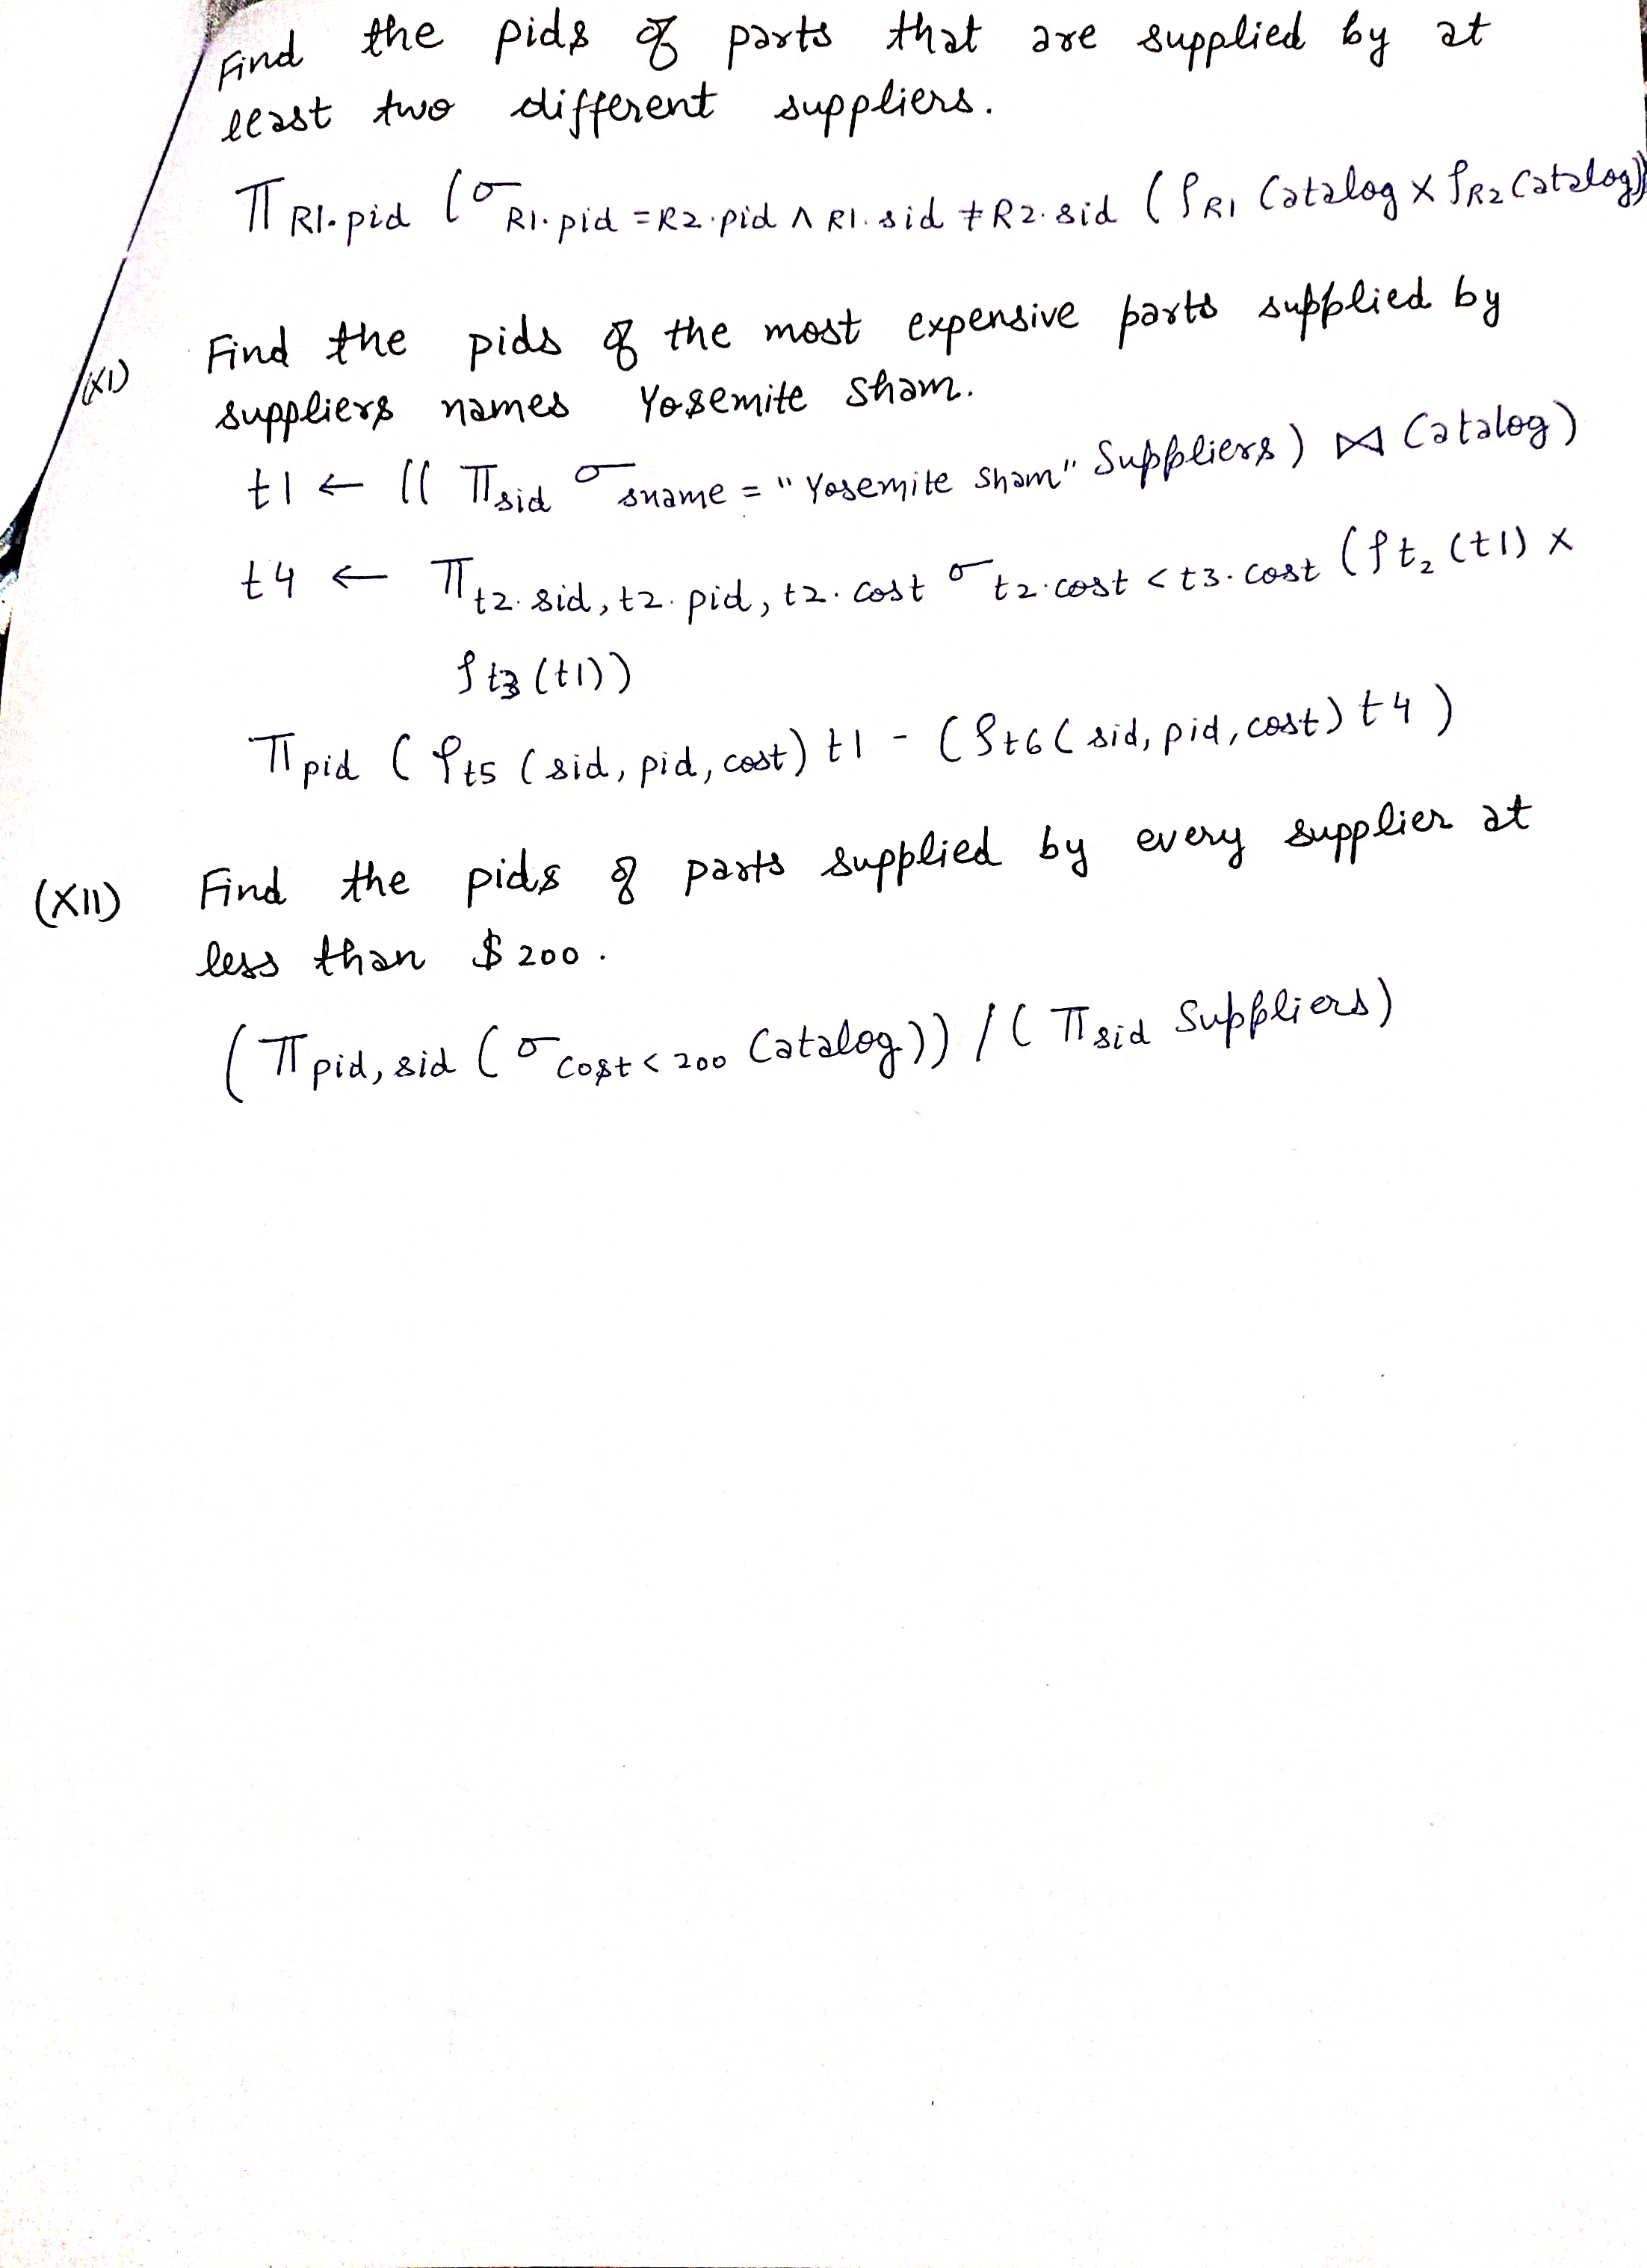 Find the pids of parts that are supplied by at
least two different suppliers.
π R1.pid (σ R1.pid = R2.pid ∧ R1.sid ≠ R2.sid (ρR1 Catalog × ρR2 Catalog))
(XI) Find the pids of the most expensive parts supplied by
suppliers names Yosemite Sham.
t1 ← (( πsid σ sname = "Yosemite Sham" Suppliers) ⋈ Catalog)
t4 ← π t2.sid, t2.pid, t2.cost σ t2.cost < t3.cost (ρt2 (t1) ×
ρt3 (t1))
π pid (ρt5 (sid, pid, cost) t1 - (ρt6 (sid, pid, cost) t4 )
(XII) Find the pids of parts supplied by every supplier at
less than $ 200 .
(π pid, sid (σ cost < 200 Catalog)) / ( πsid Suppliers)